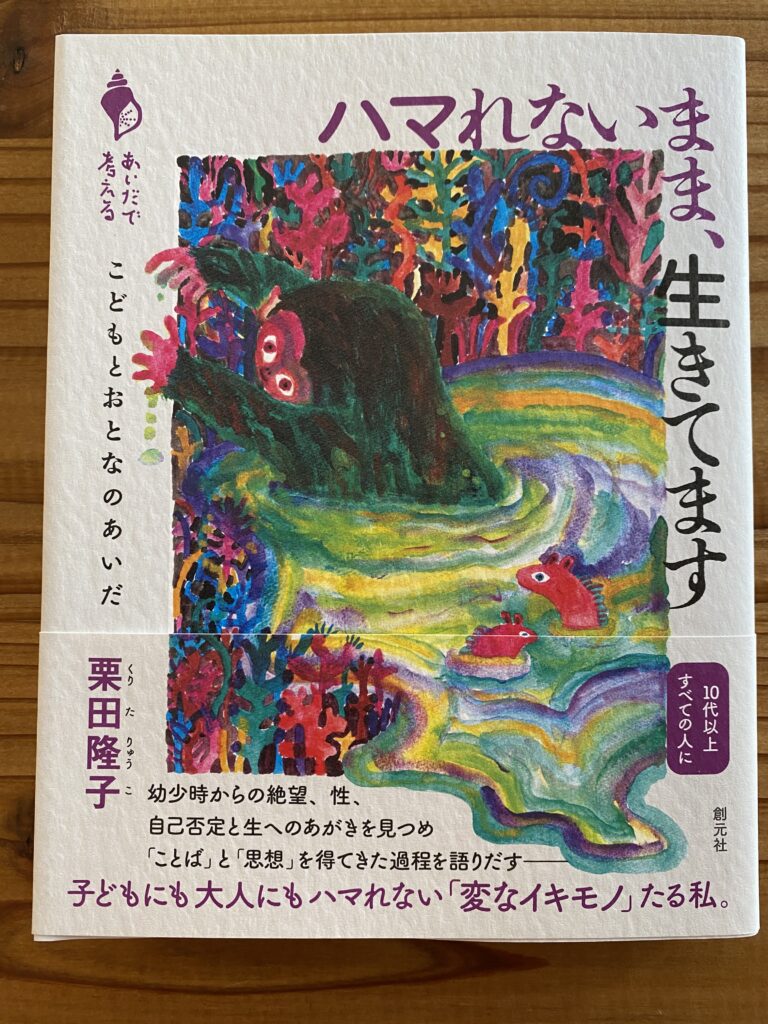 あいだで
考える
ハマれないまま、生きてます
こどもとおとなのあいだ
栗田隆子
くり た りゅう こ
10代以上
すべての人に
創元社
幼少時からの絶望、性、
自己否定と生へのあがきを見つめ
「ことば」と「思想」を得てきた過程を語りだす——
子どもにも大人にもハマれない「変なイキモノ」たる私。